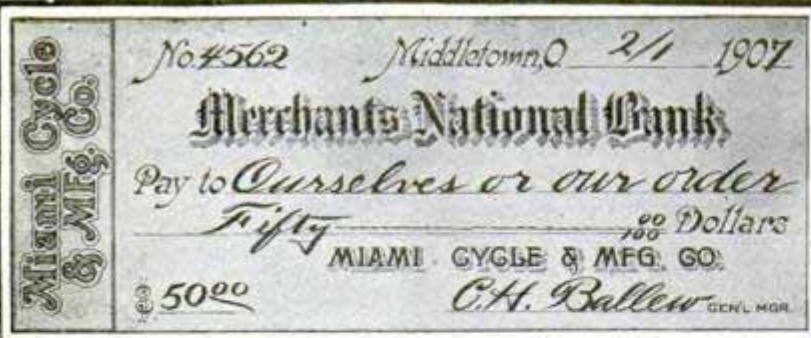 Miami Cycle
& Mfg. Co.
No. 4562 Middletown, O. 2/1 1907
Merchants National Bank
Pay to Ourselves or our order
Fifty 00/100 Dollars
MIAMI CYCLE & MFG. CO.
$ 50 00 C. H. Ballew GEN'L MGR.